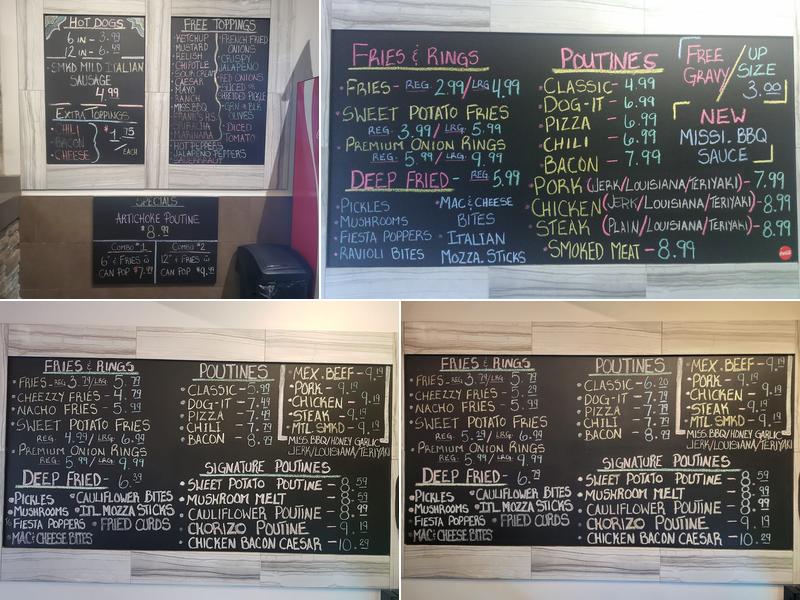 HOT DOGS
6 IN - 3.99
12 IN - 6.49
SMKD MILD ITALIAN
SAUSAGE
4.99
EXTRA TOPPINGS
CHILI
BACON
CHEESE
$1.75
EACH
FREE TOPPINGS
KETCHUP
MUSTARD
RELISH
CHIPOTLE
SOUR CREAM
CAESAR
MAYO
RANCH
MISS BBQ
FRANK'S R.H.
SRIRACHA
MARINARA
HOT PEPPERS
JALAPENO PEPPERS
SAUERKRAUT
FRENCH FRIED
ONIONS
CRISPY
JALAPENO
RED ONIONS
SLICED OR
SHREDDED PICKLE
GRN & BLK
OLIVES
DICED
TOMATO
SPECIALS
ARTICHOKE POUTINE
$8.99
COMBO #1
6" & FRIES
CAN POP $7.99
COMBO #2
12" & FRIES
CAN POP $9.99
FRIES & RINGS
FRIES - REG. 2.99/LRG 4.99
SWEET POTATO FRIES
REG. 3.99/ LRG. 5.99
PREMIUM ONION RINGS
REG. 5.99/ LRG. 9.99
DEEP FRIED - REG 5.99
PICKLES
MUSHROOMS
FIESTA POPPERS
RAVIOLI BITES
MAC & CHEESE
BITES
ITALIAN
MOZZA. STICKS
POUTINES
CLASSIC - 4.99
DOG-IT - 6.99
PIZZA - 6.99
CHILI - 6.99
BACON - 7.99
PORK (JERK/LOUISIANA/TERIYAKI) - 7.99
CHICKEN (JERK/LOUISIANA/TERIYAKI) - 8.99
STEAK (PLAIN/LOUISIANA/TERIYAKI) - 8.99
SMOKED MEAT - 8.99
FREE
GRAVY
UP
SIZE
3.00
NEW
MISSI. BBQ
SAUCE
Coca-Cola
FRIES & RINGS
FRIES - REG. 3.79/LRG. 5.79
CHEEZZY FRIES - 4.79
NACHO FRIES - 5.99
SWEET POTATO FRIES
REG. 4.99/ LRG. 6.99
PREMIUM ONION RINGS
REG. 5.99/ LRG. 9.99
DEEP FRIED - 6.39
PICKLES
MUSHROOMS
FIESTA POPPERS
MAC & CHEESE BITES
CAULIFLOWER BITES
ITL MOZZA STICKS
FRIED CURDS
POUTINES
CLASSIC - 5.99
DOG-IT - 7.49
PIZZA - 7.49
CHILI - 7.49
BACON - 8.99
MEX. BEEF - 9.19
PORK - 9.19
CHICKEN - 9.19
STEAK - 9.19
MTL SMKD - 9.19
MISS. BBQ/HONEY GARLIC
JERK/LOUISIANA/TERIYAKI
SIGNATURE POUTINES
SWEET POTATO POUTINE - 8.59
MUSHROOM MELT - 8.59
CAULIFLOWER POUTINE - 8.99
CHORIZO POUTINE - 9.19
CHICKEN BACON CAESAR - 10.29
FRIES & RINGS
FRIES - REG. 3.79/LRG. 5.79
CHEEZZY FRIES - 5.29
NACHO FRIES - 5.99
SWEET POTATO FRIES
REG. 5.29/ LRG. 6.99
PREMIUM ONION RINGS
REG. 5.99/ LRG. 9.99
DEEP FRIED - 6.79
PICKLES
MUSHROOMS
FIESTA POPPERS
MAC & CHEESE BITES
CAULIFLOWER BITES
ITL MOZZA STICKS
FRIED CURDS
POUTINES
CLASSIC - 6.20
DOG-IT - 7.79
PIZZA - 7.79
CHILI - 7.79
BACON - 8.99
MEX. BEEF - 9.19
PORK - 9.19
CHICKEN - 9.19
STEAK - 9.19
MTL SMKD - 9.19
MISS. BBQ/HONEY GARLIC
JERK/LOUISIANA/TERIYAKI
SIGNATURE POUTINES
SWEET POTATO POUTINE - 8.59
MUSHROOM MELT - 8.99
CAULIFLOWER POUTINE - 8.99
CHORIZO POUTINE - 9.19
CHICKEN BACON CAESAR - 10.29